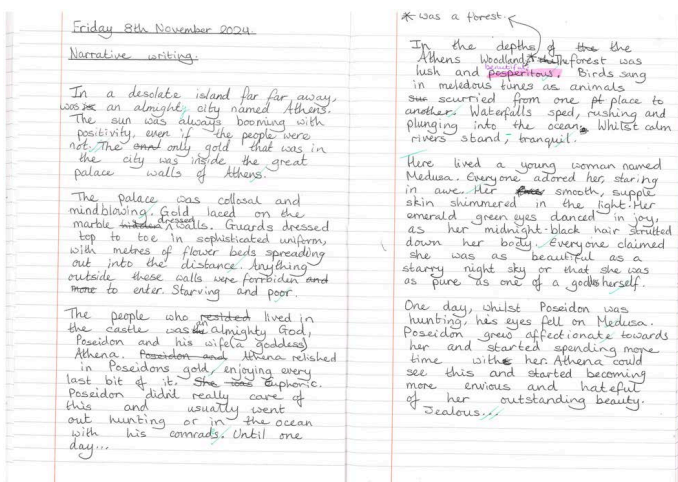 Friday 8th November 2024.
Narrative writing.
In a desolate island far far away,
was is an almighty city named Athens.
The sun was always booming with
positivity, even if the people were
not. The and only gold that was in
the city was inside the great
palace walls of Athens.
The palace was collosal and
mindblowing. Gold laced on the
marble hidden dressed walls. Guards dressed
top to toe in sophisticated uniform,
with metres of flower beds spreading
out into the distance. Anything
outside these walls were forbidden and
more to enter. Starving and poor.
The people who resided lived in
the castle was the an almighty God,
Poseidon and his wife (a goddess)
Athena. Poseidon and Athena relished
in Poseidons gold, enjoying every
last bit of it. She was Euphoric.
Poseidon didn't really care of
this and usually went
out hunting or in the ocean
with his comrads. Until one
day...
* was a forest.
In the depths of the the
Athens Woodland * the The forest was
lush and posperitous. beautiful Birds sang
in meledous tunes as animals
sur scurried from one pt place to
another. Waterfalls sped, rushing and
plunging into the ocean. Whilst calm
rivers stand, tranquil.
Here lived a young woman named
Medusa. Everyone adored her, staring
in awe. Her smooth, supple
skin shimmered in the light. Her
emerald green eyes danced in joy,
as her midnight-black hair strutted
down her body. Everyone claimed
she was as beautiful as a
starry night sky or that she was
as pure as one of a gods herself.
One day, whilst Poseidon was
hunting, his eyes fell on Medusa.
Poseidon grew affectionate towards
her and started spending more
time with her. Athena could
see this and started becoming
more envious and hateful
of her outstanding beauty.
Jealous...